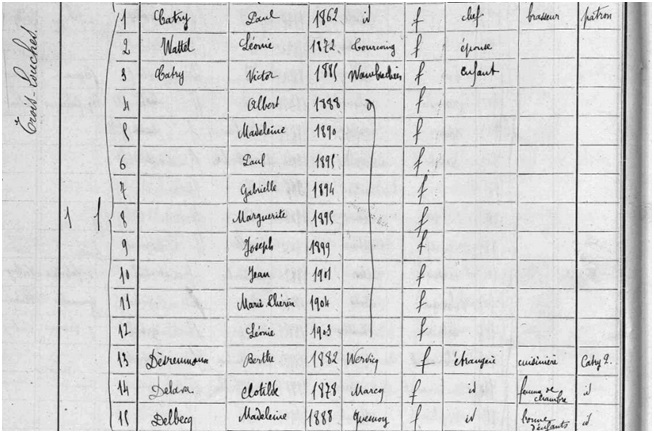 Trois-Louches.
1 1
1 Catry Paul 1862 id f chef brasseur patron
2 Wattel Léonie 1872 Tourcoing f épouse
3 Catry Victor 1885 Wambrechies f Enfant
4 Albert 1888 f
5 Madeleine 1890 f
6 Paul f
7 Gabrielle 1894 f
8 Marguerite f
9 Joseph 1899 f
10 Jean 1901 f
11 Marie 1904 f
12 Léonie 1903 f
13 Berthe 1882 Wervicq f étrangère cuisinière Catry P.
14 Clotilde 1878 Marcq f id femme de chambre id
15 Delbecq Madeleine 1888 Quesnoy f id bonne d'enfants id